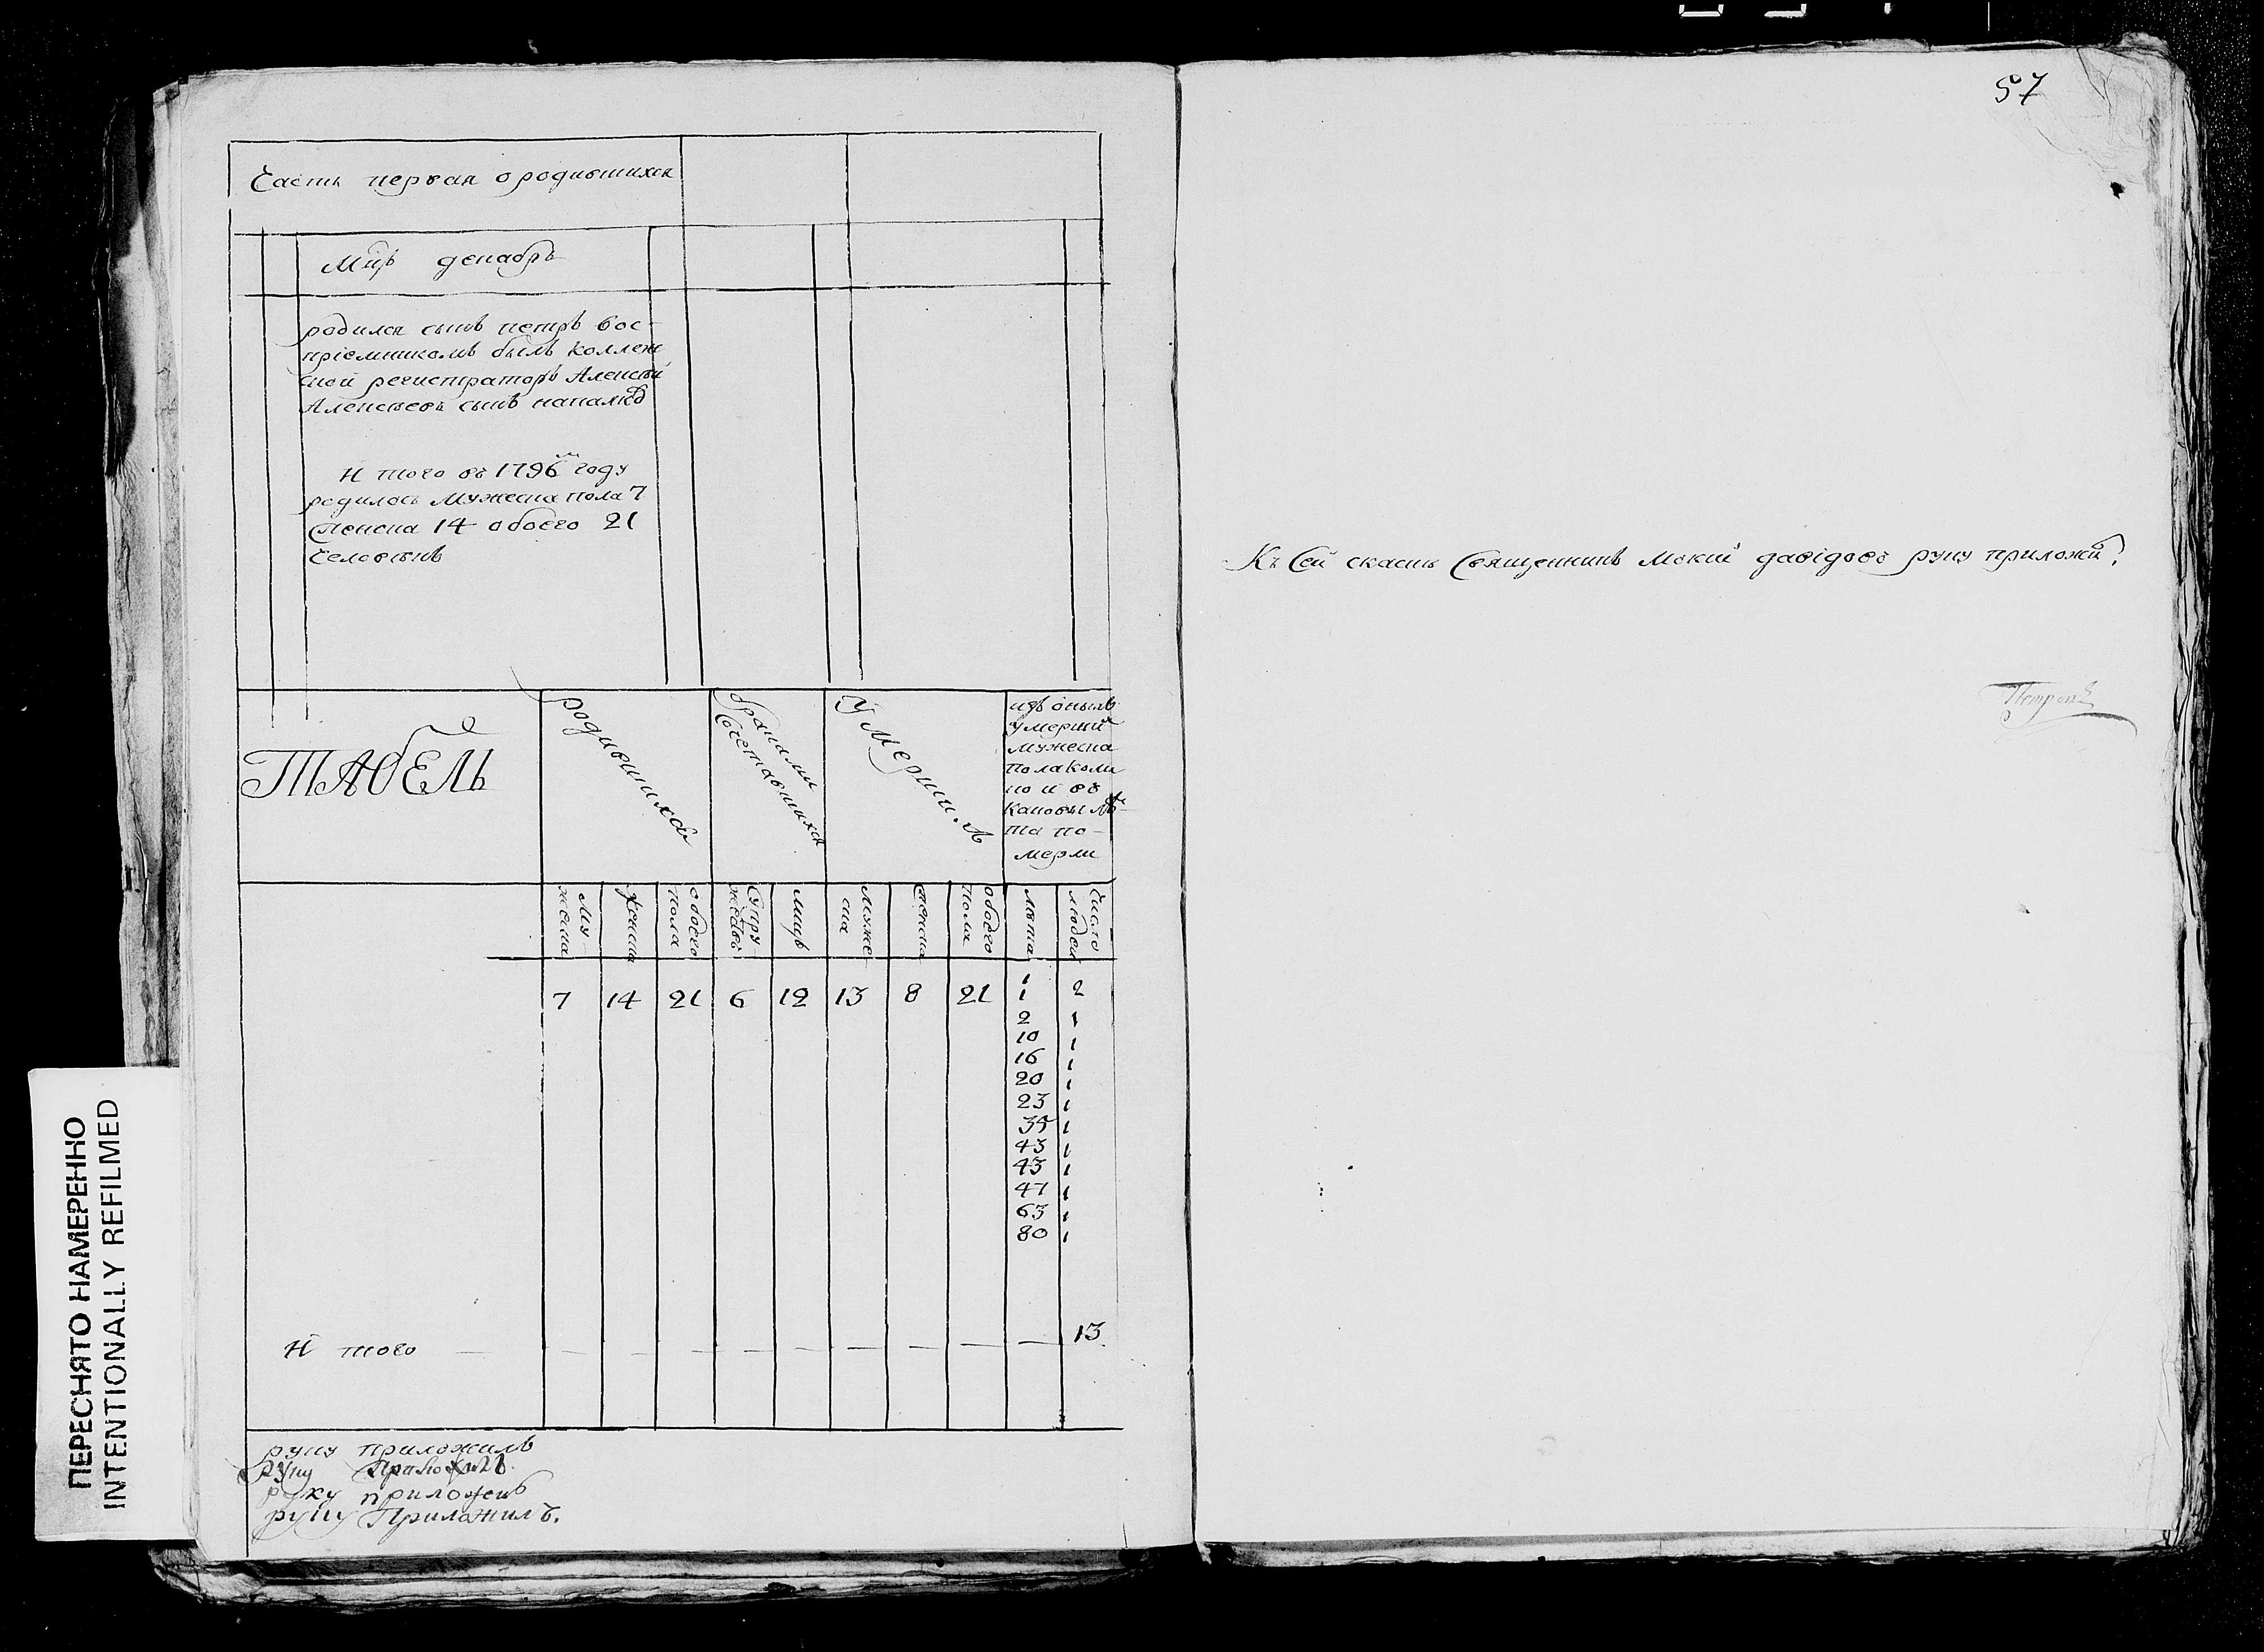 57
Часть первая о родившихся
Мцъ декабрь
родился сынъ петръ вос-
пріемникомъ былъ коллеж
ской регистраторъ Алексѣй
Алексѣевъ сынъ
И того въ 1796м году
родилось мужеска пола 7
женска 14 обоего 21
человѣкъ
ТАбЕЛЬ
родившихся
бракомъ
Сочетавшихся
Умерши.хъ
изъ оныхъ
умерших
мужеска
пола коли
ко и въ
каковы лѣ-
та по-
мерли
му-
жеска
женска
обоего
пола
Супру
жествъ
лицъ
муже
ска
женска
обоего
пола
лѣта
Число
людей
7 14 21 6 12 13 8 21 1 2
2 1
10 1
16 1
20 1
23 1
35 1
43 1
43 1
47 1
63 1
80 1
И того 13
руку приложилъ
руку Приложилъ
руку приложилъ
руку Приложилъ.
Къ Сей скаскѣ Священникъ Мокий давідовъ руку приложи
Петровъ
ПЕРЕСНЯТО НАМЕРЕННО
INTENTIONALLY REFILMED